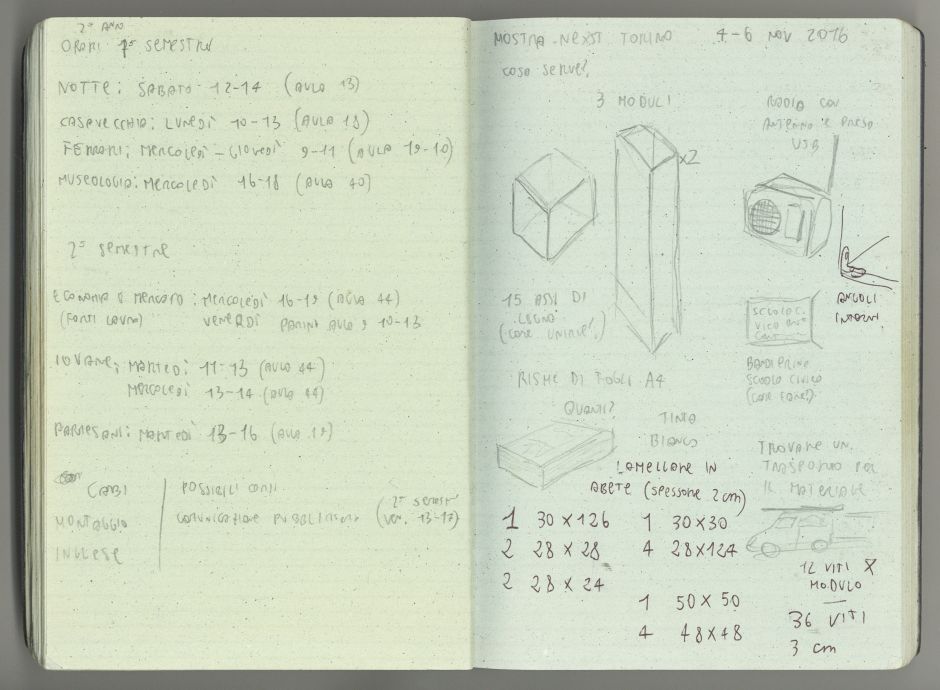 2° ANN
ORARI 1° SEMESTRE
NOTTE: SABATO 12-14 (AULA 13)
CASAVECCHIA: LUNEDÌ 10-13 (AULA 18)
FERRARI: MERCOLEDÌ - GIOVEDÌ 9-11 (AULA 19-10)
MUSEOLOGIA: MERCOLEDÌ 16-18 (AULA 40)
2° SEMESTRE
ECONOMIA E MERCATO: MERCOLEDÌ 16-19 (AULA 44)
(FONTI LAURO) VENERDÌ AULA 9 10-13
IOVANE: MARTEDÌ 11-13 (AULA 44)
MERCOLEDÌ 13-14 (AULA 44)
PARMESANI: MARTEDÌ 13-16 (AULA 19)
CABI
MONTAGGIO
INGLESE
POSSIBILI CORSI
COMUNICAZIONE PUBBLICITARIA
(2° SEMESTRE
VEN. 13-17)
MOSTRA NEXST TORINO 4-6 NOV 2016
COSA SERVE?
3 MODULI
x2
RADIO CON
ANTENNA E PRESA
USB
ANGOLI
INTERNI
15 ASSI DI
LEGNO
(COME UNIRLE?)
SCUOLA C.
VICA
BANDIERINA
SCUOLA CIVICA
(COME FARE?)
RISME DI FOGLI A4
QUANTI?
TINTA
BIANCO
TROVARE UN
TRASPORTO PER
IL MATERIALE
LAMELLARE IN
ABETE (SPESSORE 2 cm)
1 30 x 126
2 28 x 28
2 28 x 24
1 30 x 30
4 28 x 124
1 50 x 50
4 48 x 48
12 VITI X
MODULO
36 VITI
3 cm